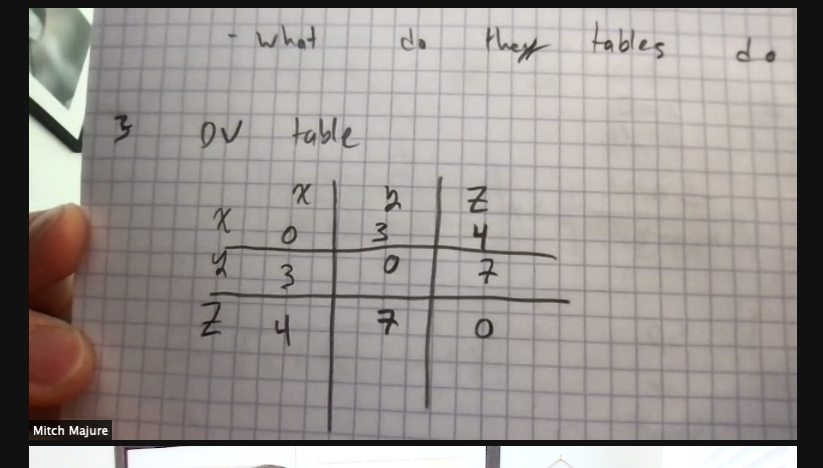 - what do they tables do
3 DV table
x y z
x 0 3 4
y 3 0 7
z 4 7 0
Mitch Majure